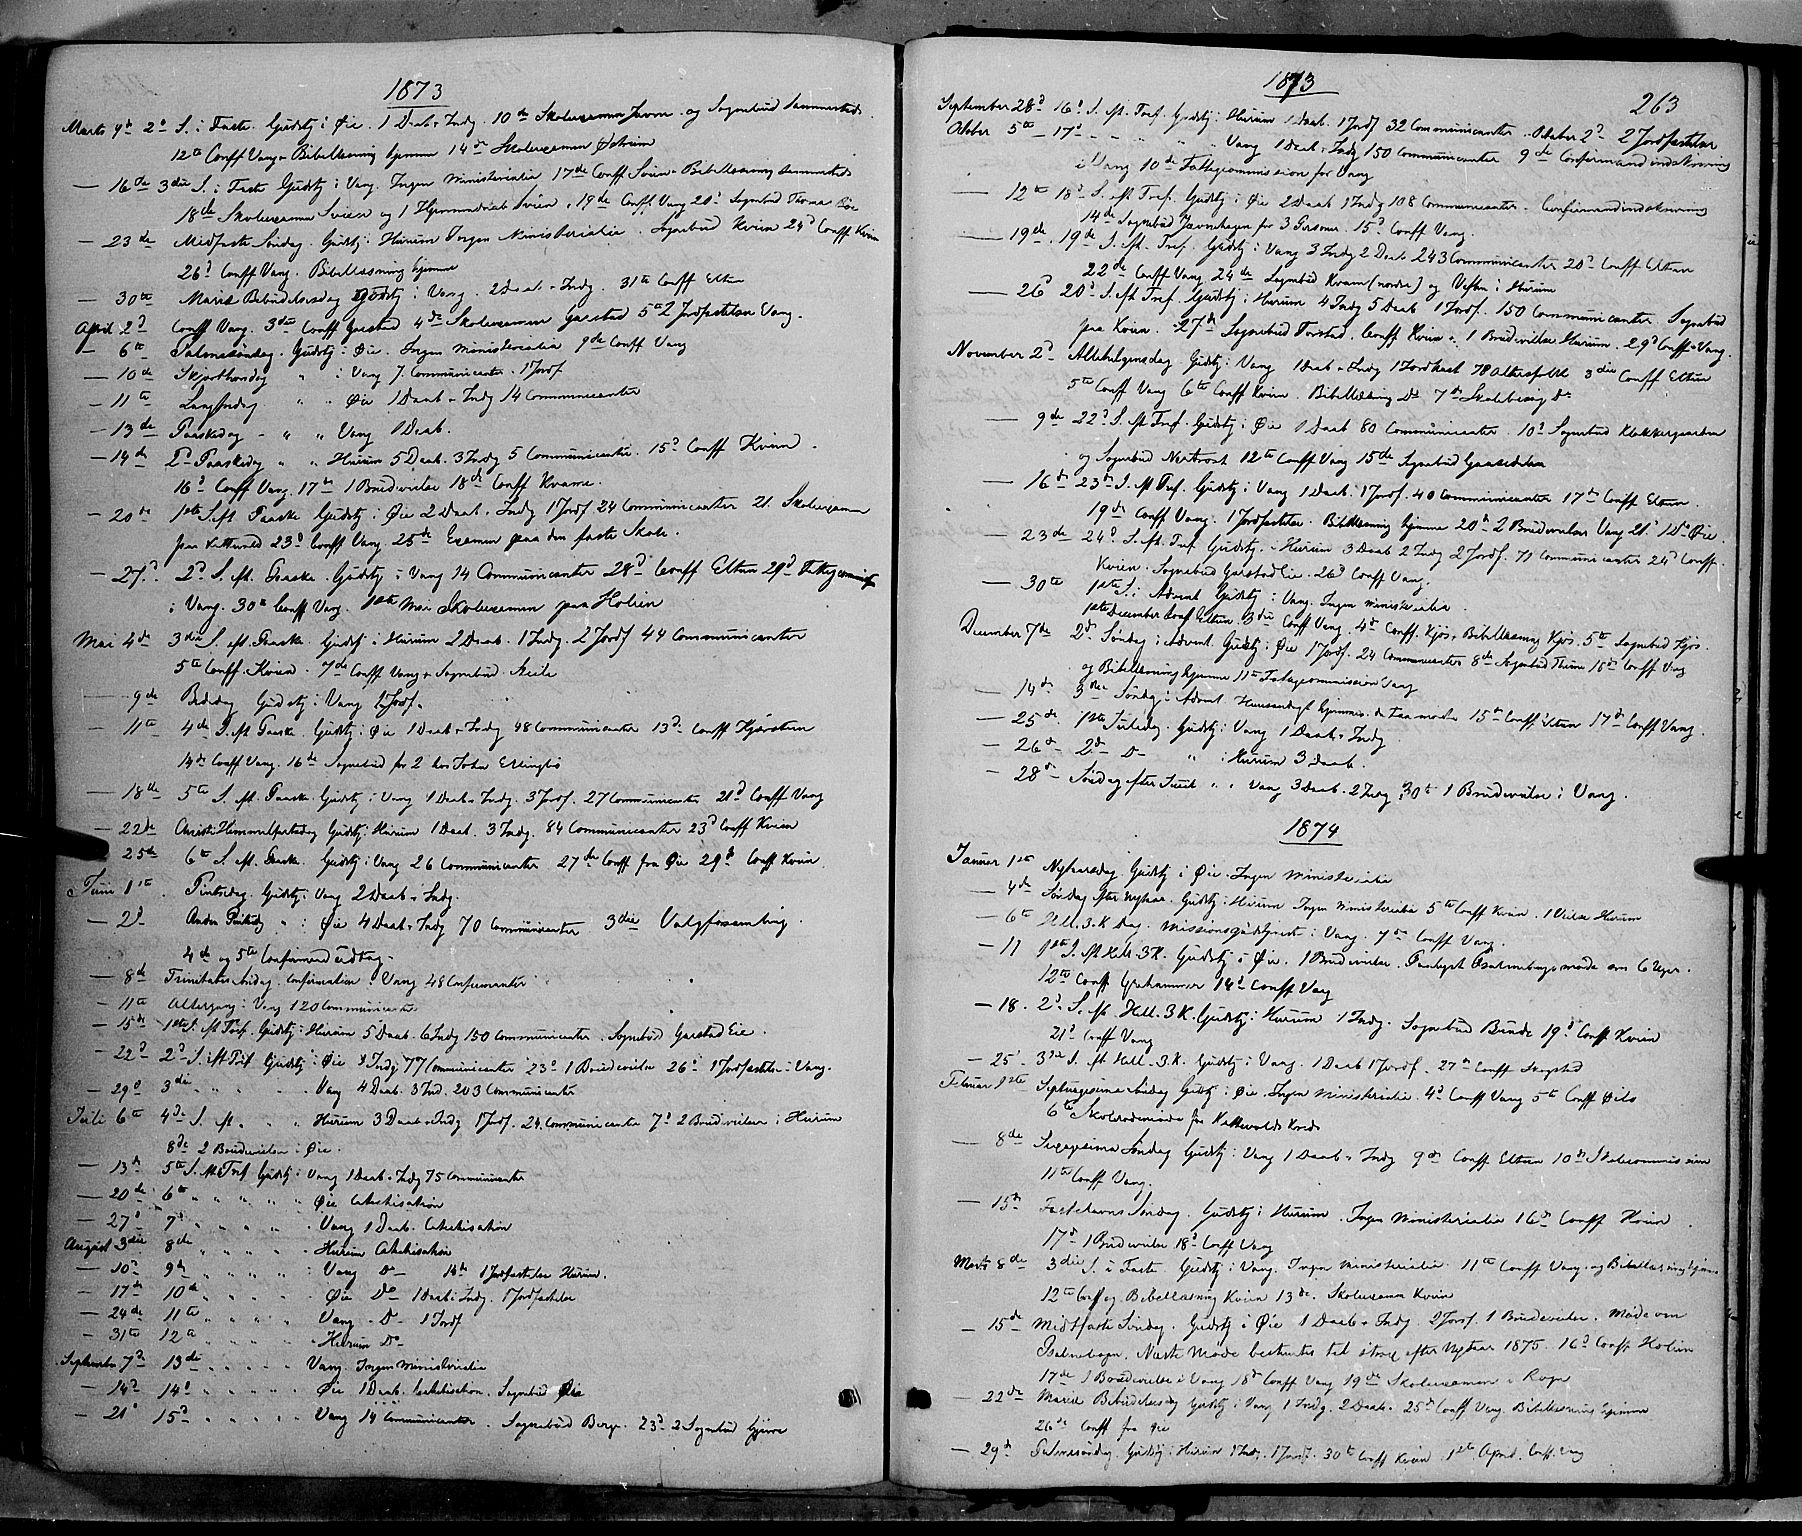 1873
Marts 9de 2d S. i Faste. Gudstj. i Øie. 1 Daab. Indg. 10de Skoleexamen og Sognebud sammesteds
12te Conff Vang. Bibellæsning hjemme 14de Skoleexamen
— 16de 3die S. i Faste Gudstj. i Vang. Ingen Ministerialia 17de Conff Bibellæsning sammesteds
18de Skoleexamen Svien og 1 Svien. 19de Conff Vang 20d Sognebud
— 23de Midfaste Søndag. Gudstj. Hurum Ingen Ministerialia. Sognebud Kvien 24d Conff Kvien
26d Conff Vang. Bibellæsning hjemme
— 30te Mariæ Bebudelsesdag Gudstj. i Vang. 2 Daab. Indg. 31te Conff Eltun
April 2d Conff Vang. 3die Conff Garstad 4de Skoleexamen Garstad 5te 2 Jordfæstelser Vang.
— 6te Palmesøndag. Gudstj. i Øie. Ingen Ministerialia 9de Conff Vang
— 10de Skjærthorsdag " i Vang 7 Communicanter. 1 Jordf
— 11te Langfredag " " Øie 1 Daab. Indg 14 Communicanter
— 13de Paaskedag " " Vang 1 Daab.
— 14de 2. Paaskedag " " Hurum 5 Daab. 3 Indg 5 Communicanter. 15d Conff Kvien.
16d Conff Vang. 17de 1 Brudevielse 18de Conff Kvame.
— 20de 1ste S. eft. Paaske Gudstj. i Øie 2 Daab. Indg 1 Jordf 24 Communicanter 21. Skoleexamen
paa Kattevold 23d Conff Vang. 25de Examen paa den faste Skole.
— 27d. 2d S. eft. Paaske. Gudstj. i Vang 14 Communicanter 28d Conff Eltun 29d
i Vang. 30te Conff Vang. 1ste Mai Skoleexamen paa Holien
Mai 4de 3die S. eft. Paaske. Gudstj. i Hurum 2 Daab. 1 Indg. 2 Jordf 44 Communicanter
5te Conff. Kvien. 7de Conff Vang. Sognebud
— 9de Bededag Gudstj. i Vang 1 Jordf.
— 11te 4de S. eft Paaske. Gudstj. i Øie 1 Daab. Indg 48 Communicanter 13d. Conff
14de Conff Vang. 16de Sognebud for 2 hos John
— 18de 5te S. eft. Paaske. Gudstj. i Vang 1 Daab. Indg. 3 Jordf. 27 Communicanter 21d Conff Vang
— 22de Christi Himmelfartsdag Gudstj. i Hurum 1 Daab. 3 Indg. 84 Communicanter 23d Conff Kvien
25de 6te S. eft. Paaske. Gudstj. i Vang 26 Communicanter 27de Conff fra Øie 29de Conff Kvien.
Juni 1ste Pintsedag. Gudstj. i Vang 2 Daab. Indg.
— 2d Anden Pintsedag " i Øie 4 Daab. Indg 70 Communicanter 3die Valgforsamling.
4de og 5te Confirmand
— 8de Trinitatis Søndag. Confirmation i Vang 48 Confirmanter
— 11te Altergang i Vang 120 Communicanter
— 15de 1ste S. eft Tref. Gudstj. i Hurum 5 Daab. 6 Indg 150 Communicanter. Sognebud Garstad Eie.
— 22d 2d S. eft Tref Gudstj. i Øie 3 Indg 77 Communicanter 23d 1 Brudevielse 26d 1 Jordfæstelse i Vang.
— 29d 3die " " " Vang 4 Daab. 3 Ind. 203 Communicanter
Juli 6te 4de S. eft. " " Hurum 3 Daab. Indg 1 Jordf. 24 Communicanter 7d 2 Brudevielser i Hurum
8de 2 Brudevielser i Øie.
— 13de 5te S. eft Tref Gudstj. i Vang 1 Daab. Indg 75 Communicanter
— 20de 6te " " " " Øie Catechisation
— 27d 7de " " " " Vang 1 Daab. Catechisation
August 3die 8de " " " " Hurum Catechisation
— 10d 9de " " " " Vang Do 14de 1 Jordfæstelse Hurum.
— 17de 10de " " " " Øie Do 1 Daab. Indg. 1 Jordfæstelse
— 24de 11te " " " " Vang Do 1 Jordf
— 31te 12te " " " " Hurum Do
September 7de 13de " " " " Vang. Ingen Ministerialia
— 14d 14d " " " " Øie 1 Daab. Catechisation. Sognebud Øie
— 21d 15d " " " " Vang 14 Communicanter. Sognebud Berge. 23d 2 Sognebud
1873
263
September 28d 16d S. eft. Tref. Gudstj. i Hurum 1 Daab. 1 Jordf 32 Communicanter. Oktober 2d 2 Jordfæstelser
October 5te 17d " " " Vang 1 Daab. Indg 150 Communicanter 9de Confirmandindskrivning
i Vang 10de Fattigcommission for Vang
— 12te 18d S. eft Tref. Gudstj. i Øie 2 Daab 1 Indg 108 Communicanter. Confirmandindskrivning
14de Sognebud for 3 Personer. 15d Conff Vang.
— 19de 19de S. eft. Tref. Gudstj. i Vang 3 Indg 2 Daab 243 Communicanter 20d Conff Eltun
22de Conff Vang 24de Sognebud Kvam (nordre) og i Hurum
— 26d 20d S. eft Tref. Gudstj. i Hurum 4 Indg 5 Daab 1 Jordf. 150 Communicanter. Sognebud
paa Kvien. 27de Sognebud Conff Kvien. 1 Brudevielse Hurum. 29d Conff Vang.
November 2d Allehelgensdag Gudstj. i Vang 1 Daab. Indg 1 Jordkast 78 Altersfolk 3die Conff Eltun
5te Conff Vang 6te Conff Kvien. Bibellæsning Do 7de Skolebesøg Do
— 9de 22d S. eft Tref. Gudstj. i Øie 1 Daab 80 Communicanter. 10d Sognebud Klokkergaarden
og Sognebud 12te Conff Vang 15de Sognebud
— 16de 23de S. eft Tref. Gudstj. i Vang 1 Daab. 1 Jordf. 40 Communicanter 17de Conff Eltun.
19de Conff Vang. 1 Jordfæstelse. Bibellæsning hjemme 20de 2 Brudevielser Vang 21d 1 Do Øie.
— 23de 24d S. eft. Tref. Gudstj. i Hurum 3 Daab 2 Indg 2 Jordf. 71 Communicanter 24d Conff.
Kvien. Sognebud Garstad Eie. 26d Conff Vang.
— 30te 1ste S. i Advent Gudstj. i Vang. Ingen Ministerialia.
1ste December Conf Eltun. 3die Conff Vang. 4de Conff. Kjøs, Bibellæsning Kjøs. 5te Sognebud Kjøs.
December 7de 2d Søndag i Advent. Gudstj. i Øie 1 Jordf. 24 Communicanter 8de Sognebud Thune 10de Conff Vang
og Bibellæsning hjemme 11te Fattigcommission Vang
— 14de 3die Søndag i Advent hjemme 15de Conff Eltun 17de Conff Vang.
— 25de 1ste Juledag. Gudstj. i Vang 1 Daab. Indg.
— 26de 2de Do " i Hurum 3 Daab.
— 28de Søndag efter Juul " i Vang 3 Daab. 2 Indg. 30te 1 Brudevielse i Vang.
1874
Januar 1ste Nytaarsdag Gudstj. i Øie. Ingen Ministerialia
— 4de Søndag efter Nytaar. Gudstj. i Hurum Ingen Ministerialia 5te Conff Kvien. 1 Vielse Hurum
— 6te Hell. 3. K dag. Missionsgudstjeneste i Vang. 7de Conff Vang.
— 11 1ste S. eft Hell. 3 K. Gudstj. i Øie. 1 Brudevielse. Psalmebogsmøde om 6 Uger.
12te Conff 14d Conff Vang
— 18. 2d S. eft. Hell. 3 K. Gudstj. i Hurum 1 Indg. Sognebud Bunde 19d Conff Kvien
21d Conff Vang
— 25d 3die S. eft Hell. 3 K. Gudstj. i Vang. 1 Daab 1 Jordf. 27de Conff Skogstad
Februar 1ste Septuagesima Søndag Gudstj. i Øie. Ingen Ministerialia. 4d Conff Vang 5te Conff Øilo
6te for Kattevolds Kreds
— 8de Sexagesima Søndag Gudstj. i Vang 1 Daab. Indg 9de Conff Eltun 10de Skolecommission
11te Conff Vang.
— 15de Fastelavns Søndag. Gudstj. i Hurum. Ingen Ministerialia 16de Conff Kvien.
17d 1 Brudevielse 18d Conff Vang
Marts 8de 3die S. i Faste. Gudstj. i Vang. Ingen Ministerialia. 11te Conff Vang og Bibellæsning hjemme
12te Conff og Bibellæsning Kvien 13de. Skoleexamen Kvien
— 15de Midfaste Søndag. Gudstj. i Øie 1 Daab. Indg. 2 Jordf. 1 Brudevielse. Møde om
Psalmebogen. Næste Møde bestemtes til strax efter Nytaar 1875. 16d Conff Holien
17de 1 Brudevielse i Vang 18d Conff Vang 19de Skoleexamen i Rogn
— 22de Mariæ Bebudelsesdag Gudstj. i Vang 1 Indg. 2 Daab. 25d Conff Vang. Bibellæsning hjemme
26de Conff fra Øie
— 29de Palmesøndag Gudstj. i Hurum 1 Indg. 1 Jordf. 30te Conff Kvien. 1ste April. Conff. Vang